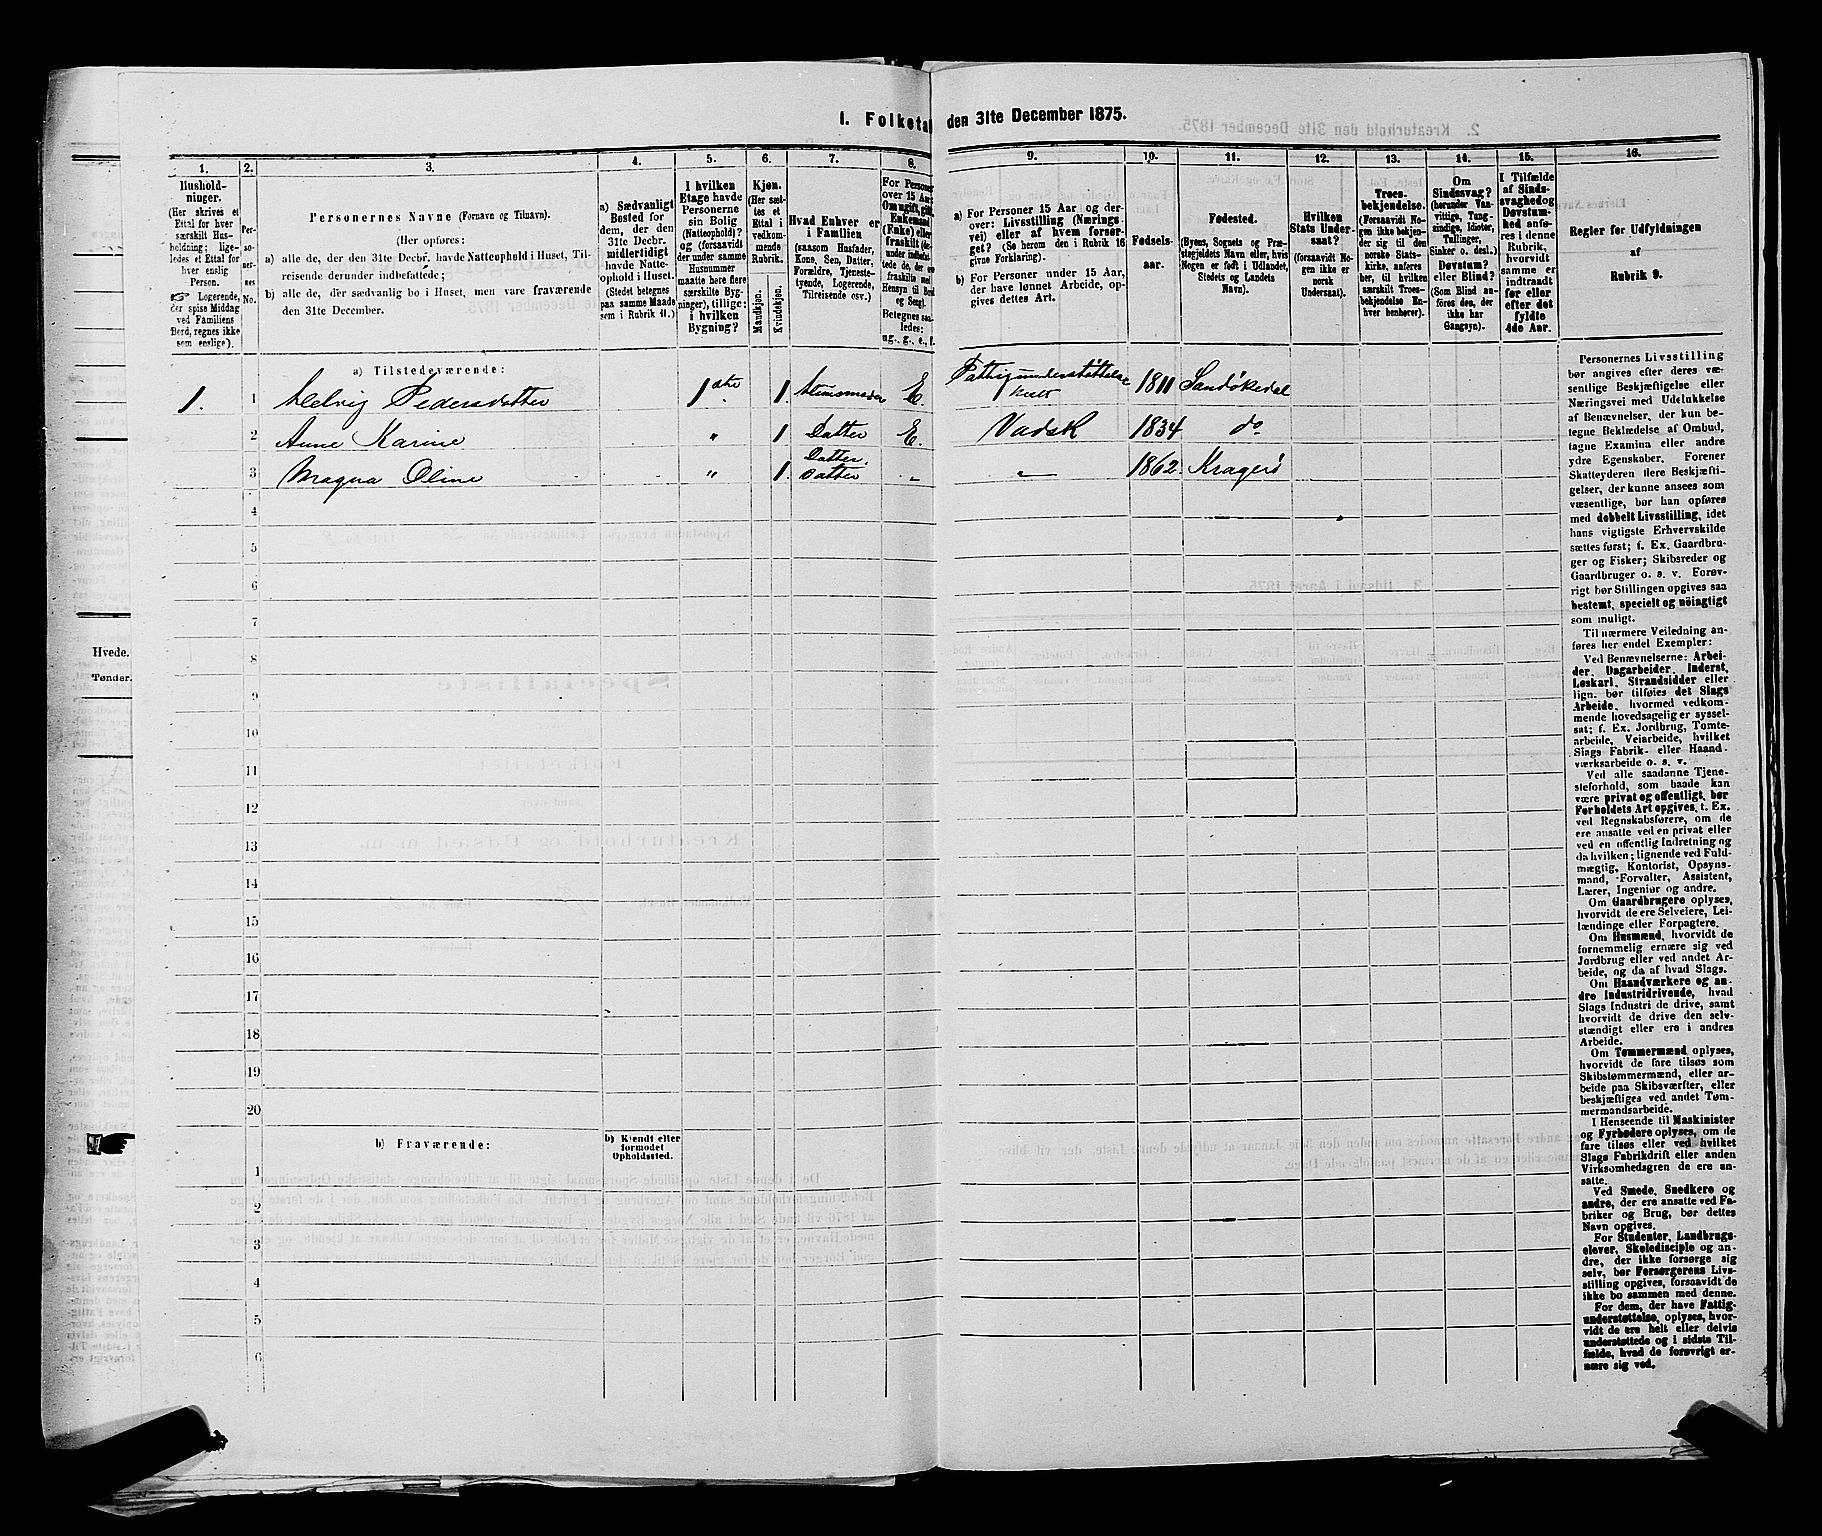 1. Folketal den 31te December 1875.
1.
2.
3.
4.
5.
6.
7.
8.
9.
10.
11.
12.
13.
14.
15.
16.
Hushold-
ninger.
(Her skrives et
Ettal for hver
særskilt Hus-
holdning; lige-
ledes et Ettal for
hver enslig
Person.
☞ Logerende,
der spise Middag
ved Familiens
Bord, regnes ikke
som enslige).
Per-
so-
ner-
nes
No.
Personernes Navne (Fornavn og Tilnavn).
(Her opføres:
a) alle de, der den 31te Decbr. havde Natteophold i Huset, Til-
reisende derunder indbefattede;
b) alle de, der sædvanlig bo i Huset, men vare fraværende
den 31te December.
a) Sædvanligt
Bosted for
dem, der den
31te Decbr.
midlertidigt
havde Natte-
ophold i Huset.
(Stedet betegnes
paa samme Maade
som i Rubrik 11.)
I hvilken
Etage havde
Personerne
sin Bolig
(Natteophold)?
og (forsaavidt
der under samme
Husnummer
maatte høre flere
særskilte Byg-
ninger), tillige:
i hvilken
Bygning?
Kjøn.
(Her sæt-
tes et
Ettal i
vedkom-
mende
Rubrik.
Mandkjøn.
Kvindekjøn.
Hvad Enhver er
i Familien
(saasom Husfader,
Kone, Søn, Datter,
Forældre, Tjeneste-
tyende, Logerende,
Tilreisende osv.)
For Personer
over 15 Aar:
Om ugift, gift,
Enkemand
(Enke) eller
fraskilt (de-
under indbefat-
tede de, der ere
fraskilte med
Hensyn til Bord
og Seng).
Betegnes saa-
ledes:
ug., g., e., f.
a) For Personer 15 Aar og der-
over: Livsstilling (Nærings-
vei) eller af hvem forsør-
get? (Se herom den i Rubrik 16
givne Forklaring).
b) For Personer under 15 Aar,
der have lønnet Arbeide, op-
gives dettes Art.
Fødsels-
aar.
Fødested.
(Byens, Sognets og Præ-
stegjeldets Navn eller, hvis
Nogen er født i Udlandet,
Stedets og Landets
Navn).
Hvilken
Stats Under-
saat?
(forsaavidt No-
gen ikke er
norsk
Undersaat).
Troes-
bekjendelse.
(Forsaavidt No-
gen ikke bekjen-
der sig til den
norske Stats-
kirke, anføres
her, til hvilken
særskilt Troes-
bekjendelse En-
hver henhører).
Om
Sindssvag?
(herunder Van-
vittige, Tung-
sindige, Idioter,
Tullinger,
Sinker o. desl.)
Døvstum?
eller Blind?
(Som Blind an-
føres des, der
ikke har
Gangsyn).
I Tilfælde
af Sinds-
svaghed og
Døvstum-
hed anfø-
res i denne
Rubrik,
hvorvidt
samme er
indtraadt
før eller
efter det
fyldte
4de Aar.
Regler for Udfyldningen
af
Rubrik 9.
a) Tilstedeværende:
1. 1 Helvig Pedersdatter 1ste 1 Husmoder E. Fattigunderstøttelse helt 1811 Sandøkedal
2 Anne Karine " 1 Datter E. Vadsk 1834 do
3 Magna Oline " 1. Datter Datter " " 1862. Kragerö
4
5
6
7
8
9
10
11
12
13
14
15
16
17
18
19
20
b) Fraværende:
b) Kjendt eller
formodet
Opholdssted.
1
2
3
4
5
6
Personernes Livsstilling
bør angives efter deres væ-
sentlige Beskjæftigelse eller
Næringsvei med Udelukkelse
af Benævnelser, der kun be-
tegne Beklædelse af Ombud,
tagne Examina eller andre
ydre Egenskaber. Forener
Skatteyderen flere Beskjæfti-
gelser, der kunne ansees som
væsentlige, bør han opføres
med dobbelt Livsstilling, idet
hans vigtigste Erhvervskilde
sættes først; f. Ex. Gaardbru-
ger og Fisker; Skibsreder og
Gaardbruger o. s. v. Forøv-
rigt bør Stillingen opgives saa
bestemt, specielt og nöiagtigt
som muligt.
Til nærmere Veiledning an-
føres her endel Exempler:
Ved Benævnelserne: Arbei-
der, Dagarbeider, Inderst,
Løskarl, Strandsidder eller
lign. bør tilføies det Slags
Arbeide, hvormed vedkom-
mende hovedsagelig er syssel-
sat; f. Ex. Jordbrug, Tomte-
arbeide, Veiarbeide, hvilket
Slags Fabrik- eller Haand-
værksarbeide o. s. v.
Ved alle saadanne Tjene-
steforhold, som baade kan
være privat og offentligt, bør
Forholdets Art opgives, t. Ex.
ved Regnskabsførere, om de
ere ansatte ved en privat eller
ved en offentlig Indretning og
da hvilken; lignende ved Fuld-
mægtig, Kontorist, Opsyns-
mand, Forvalter, Assistent,
Lærer, Ingeniør og andre.
Om Gaardbrugere oplyses,
hvorvidt de ere Selveiere, Lei-
lændinge eller Forpagtere.
Om Husmænd, hvorvidt de
fornemmelig ernære sig ved
Jordbrug eller ved andet Ar-
beide, og da af hvad Slags.
Om Haandværkere og an-
dre Industridrivende, hvad
Slags Industri de drive, samt
hvorvidt de drive den selv-
stændigt eller ere i andres
Arbeide.
Om Tømmermænd oplyses,
hvorvidt de fare tilsøs som
Skibstømmermænd, eller ar-
beide paa Skibsværfter, eller
beskjæftiges ved andet Tøm-
mermandsarbeide.
I Henseende til Maskinister
og Fyrbødere oplyses, om de
fare tilsøs eller ved hvilket
Slags Fabrikdrift eller anden
Virksomhedsgren de ere an-
satte.
Ved Smede, Snedkere og
andre, der ere ansatte ved Fa-
briker og Brug, bør dettes
Navn opgives.
For Studenter, Landbrugs-
elever, Skoledisciple og an-
dre, der ikke forsørge sig
selv, bør Forsørgerens Livs-
stilling opgives, forsaavidt de
ikke bo sammen med denne.
For dem, der have Fattig-
understøttelse, oplyses, hvor-
vidt de ere helt eller delvis
understøttede og i sidste Til-
fælde, hvad de forøvrigt er-
nære sig ved.
Hvede.
Tønder.